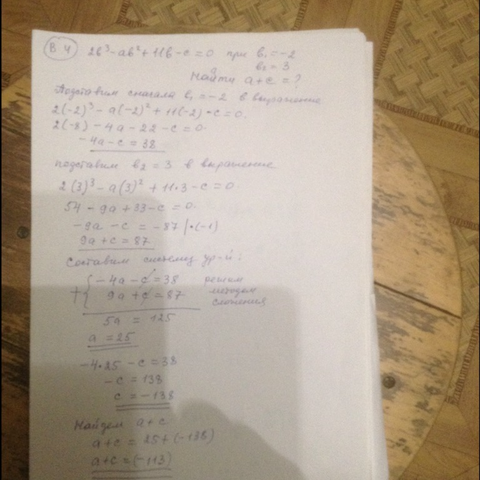 В 4 2b³-ab²+11b-c=0 при b₁=-2
b₂=3
Найти a+c=?
Подставим сначала b₁=-2 в выражение
2(-2)³-a(-2)²+11(-2)-c=0
2(-8)-4a-22-c=0
-4a-c=38
подставим b₂=3 в выражение
2(3)³-a(3)²+11•3-c=0
54-9a+33-c=0
-9a-c=-87 |•(-1)
9a+c=87
Составим систему ур-й:
-4a-c=38 решим
+ { 9a+c=87 методом
сложения
5a=125
a=25
-4•25-c=38
-c=138
c=-138
Найдем a+c
a+c=25+(-138)
a+c=(-113)